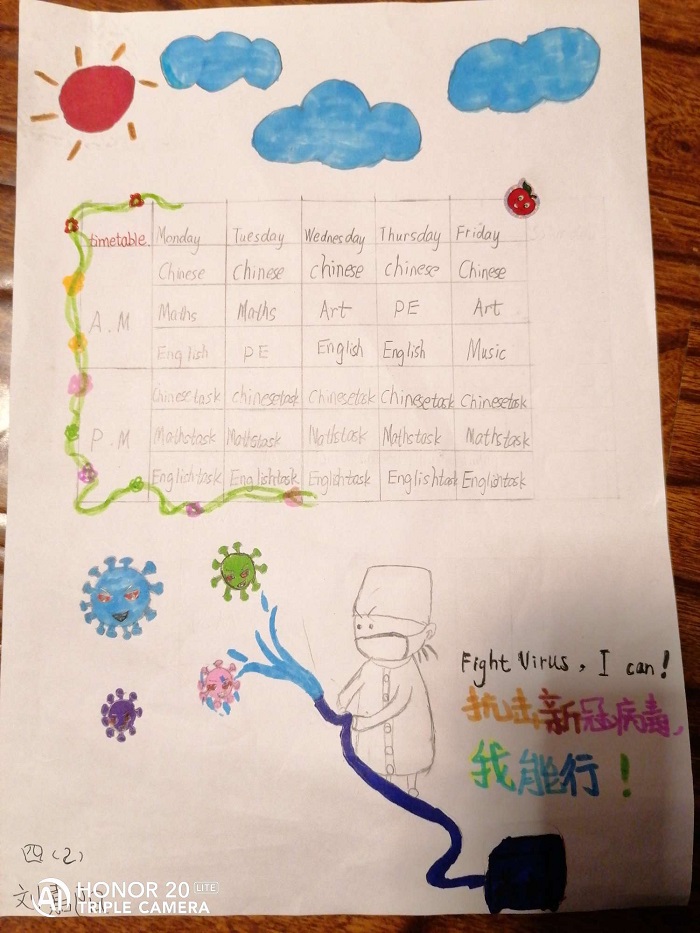 timetable. Monday Tuesday Wednesday Thursday Friday
Chinese chinese chinese chinese Chinese
A.M Maths Maths Art PE Art
English PE English English Music
Chinese task chinesetask Chinesetask Chinesetask Chinesetask
P.M Mathstask Mathstask Mathstask Mathstask Mathstask
Englishtask Englishtask Englishtask Englishtask Englishtask
Fight Virus, I can!
抗击新冠病毒,
我能行!
四(2)
HONOR 20 LITE
TRIPLE CAMERA